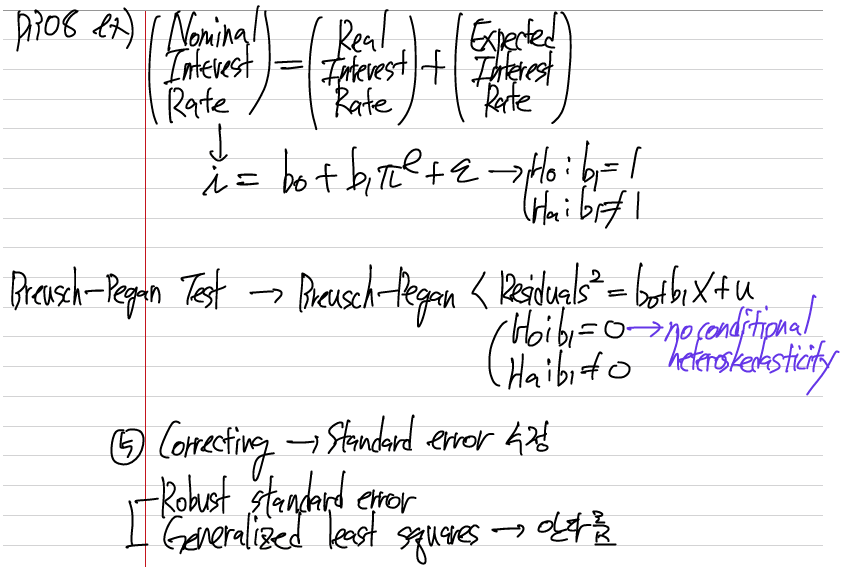 p.308 ex) (Nominal Interest Rate) = (Real Interest Rate) + (Expected Interest Rate)
↓
i = b₀ + b₁πᵉ + ε → H₀ : b₁ = 1
Ha : b₁ ≠ 1
Breusch-Pegan Test → Breusch-Pegan < Residuals² = b₀+b₁X+u
H₀ : b₁ = 0 → no conditional
heteroskedasticity
Ha : b₁ ≠ 0
⑤ Correcting → Standard error 수정
Robust standard error
Generalized least squares →